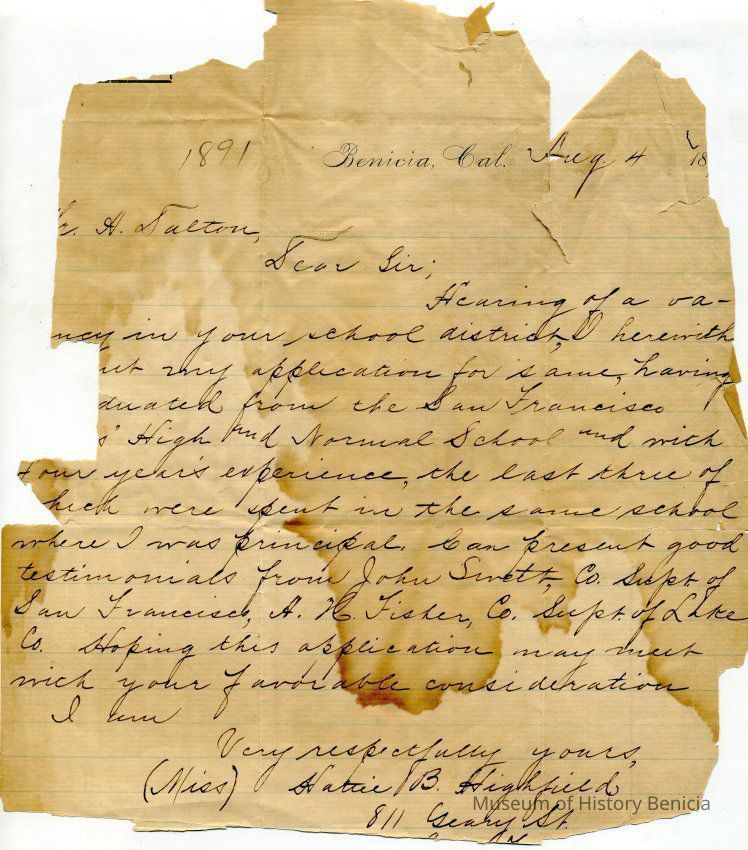 1891 Benicia, Cal. Aug. 4 18
H. Dalton,
Dear Sir;
Hearing of a va-
ncy in your school district, I herewith
my application for same, having
duated from the San Francisco
s' High and Normal School and with
four year's experience, the last three of
hich were spent in the same school
where I was principal. Can present good
testimonials from John Swett, Co. Supt. of
San Francisco, A. H. Fisher, Co. Supt. of Lake
Co. Hoping this application may meet
with your favorable consideration
I am
Very respectfully yours,
(Miss) Hattie B. Highfield
811 Geary St.
Museum of History Benicia